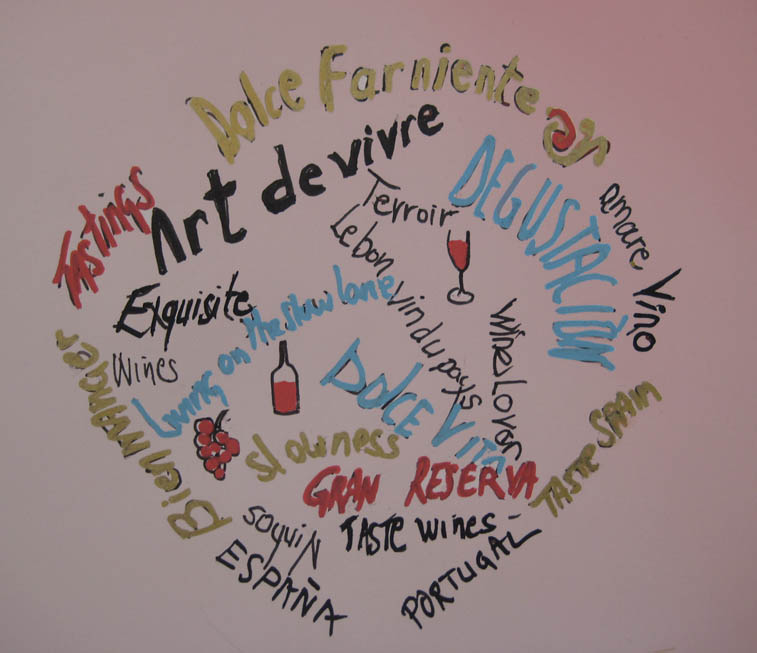 Dolce Farniente
Art de vivre
Tastings
Terroir
DEGUSTACIÓN
amare Vino
Le bon vin du pays
Exquisite
Wines
Living on the slow lane
Wine Lover
DOLCE VITA
Bien manger
Slowness
GRAN RESERVA
TASTE SPAIN
TASTE WINES
ESPAÑA
PORTUGAL